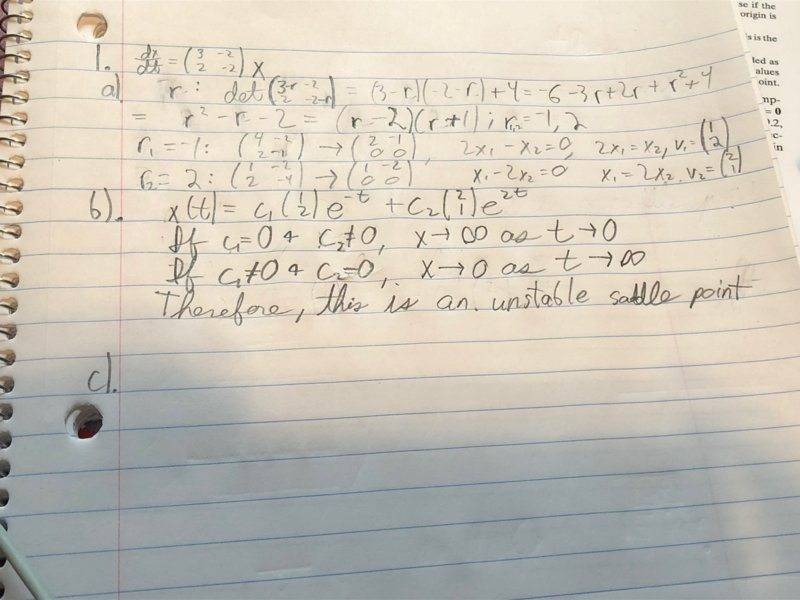 se if the
origin is
s is the
led as
alues
oint.
mp-
= 0
1.2,
c-
in
1. dx/dt = (3 -2 / 2 -2) x
a) r : det(3-r -2 / 2 -2-r) = (3-r)(-2-r)+4 = -6-3r+2r+r²+4
= r² - r - 2 = (r-2)(r+1) ; r₁,₂ = -1, 2
r₁ = -1 : (4 -2 / 2 -1) → (2 -1 / 0 0), 2x₁ - x₂ = 0, 2x₁ = x₂, v₁ = (1 / 2)
r₂ = 2 : (1 -2 / 2 -4) → (1 -2 / 0 0) x₁ - 2x₂ = 0 x₁ = 2x₂. v₂ = (2 / 1)
b). x(t) = c₁(1 / 2)e^-t + c₂(2 / 1)e^2t
If c₁=0 + c₂≠0, x→∞ as t→0
If c₁≠0 + c₂=0, x→0 as t→∞
Therefore, this is an. unstable saddle point
c).